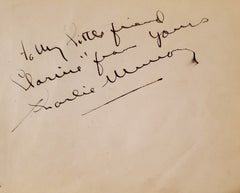 To My little friend
"Clarine" from Yours
Charlie Murray